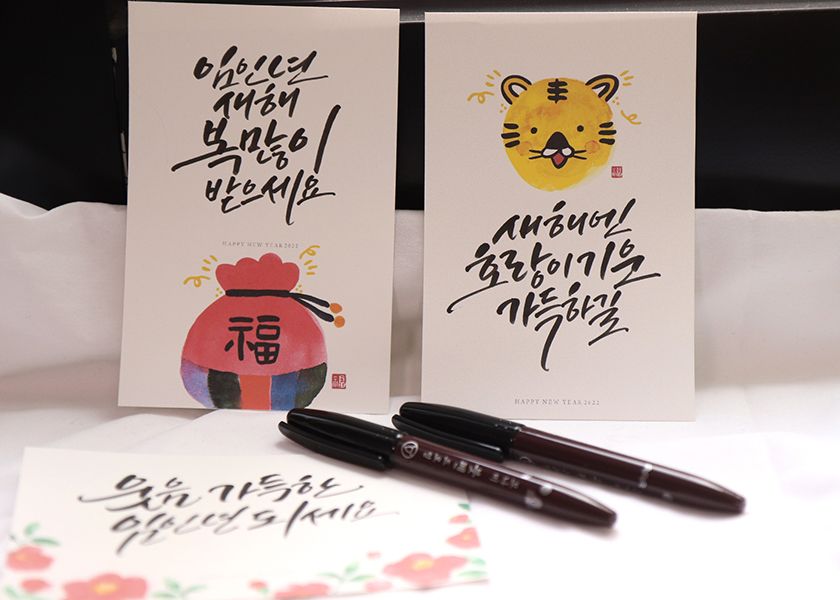 임인년
새해
복많이
받으세요
HAPPY NEW YEAR 2022
福
새해엔
호랑이기운
가득하길
HAPPY NEW YEAR 2022
웃음 가득한
임인년 되세요